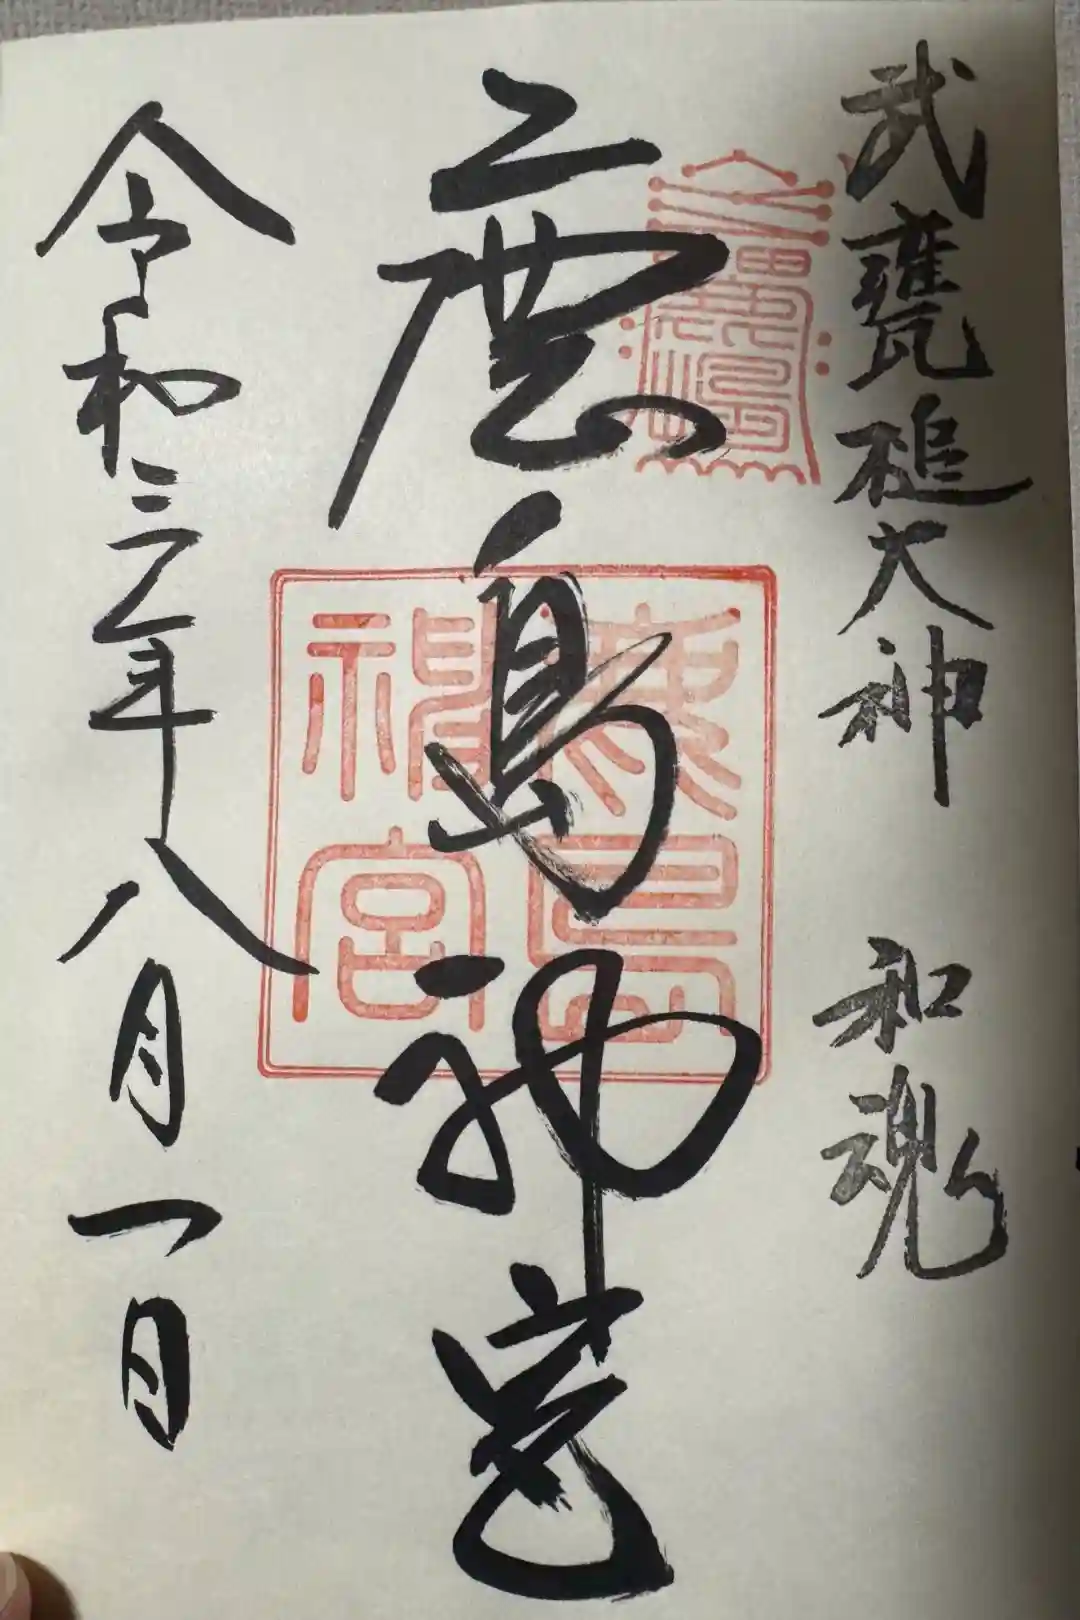 武甕槌大神 和魂
鹿島神宮
鹿島
神宮
令和三年八月一日